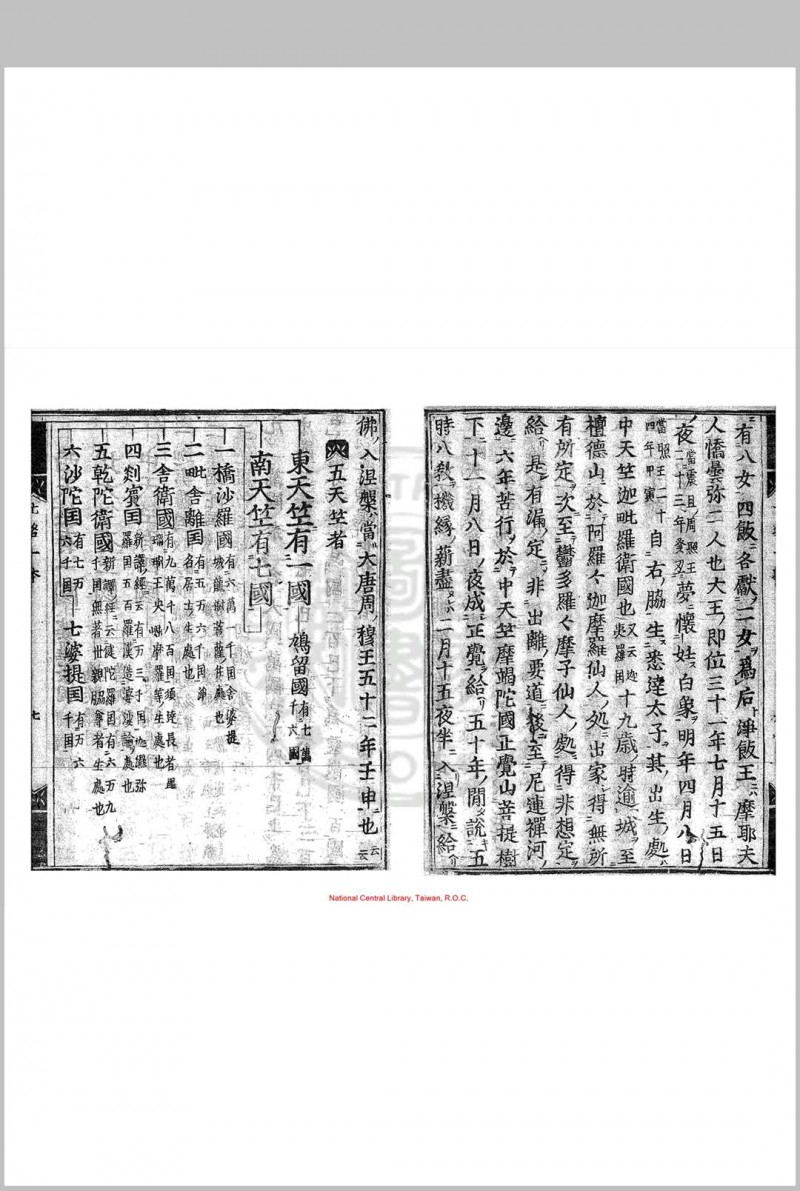 有八女四飯各獻二女爲后淨飯王摩耶夫
人憍曇弥二人也大王即位三十一年七月十五日
夜當震旦周照王二十三年癸丑夢懷妊白象明年四月八日
當照王二十四年甲寅自右脇生悉達太子其出生處
中天竺迦毗羅衛國也又云迦夷羅国十九歳時逾城至
檀德山於阿羅々迦摩羅仙人処出家得無所
有所定次至鬱多羅々摩子仙人処得非想定
給是有漏定非出離要道後至尼連禪河
邊六年苦行於中天竺摩竭陀國正覺山菩提樹
下十二月八日夜成正覺給五十年間說五
時八教機縁薪盡二月十五夜半入涅槃給
佛入涅槃當大唐周穆王五十二年壬申也云云
五天竺者
東天竺有一國 鳩留國有七萬千六國
南天竺有七國
一橋沙羅國有六萬一千国舍婆提城薩樹菩薩住處也
二毗舍離国有五万六千国
三舍衛國有九萬千八百国須達長者
四剡賓国新譯經云有万三千国
羅国五百羅漢造婆沙論處也
五乾陀衛國新譯經云健陀羅国有六万九千国無著世親脇尊者生處也
六沙陀国有七万六千国 七婆提国有万六千国
七
National Central Library, Taiwan, R.O.C.